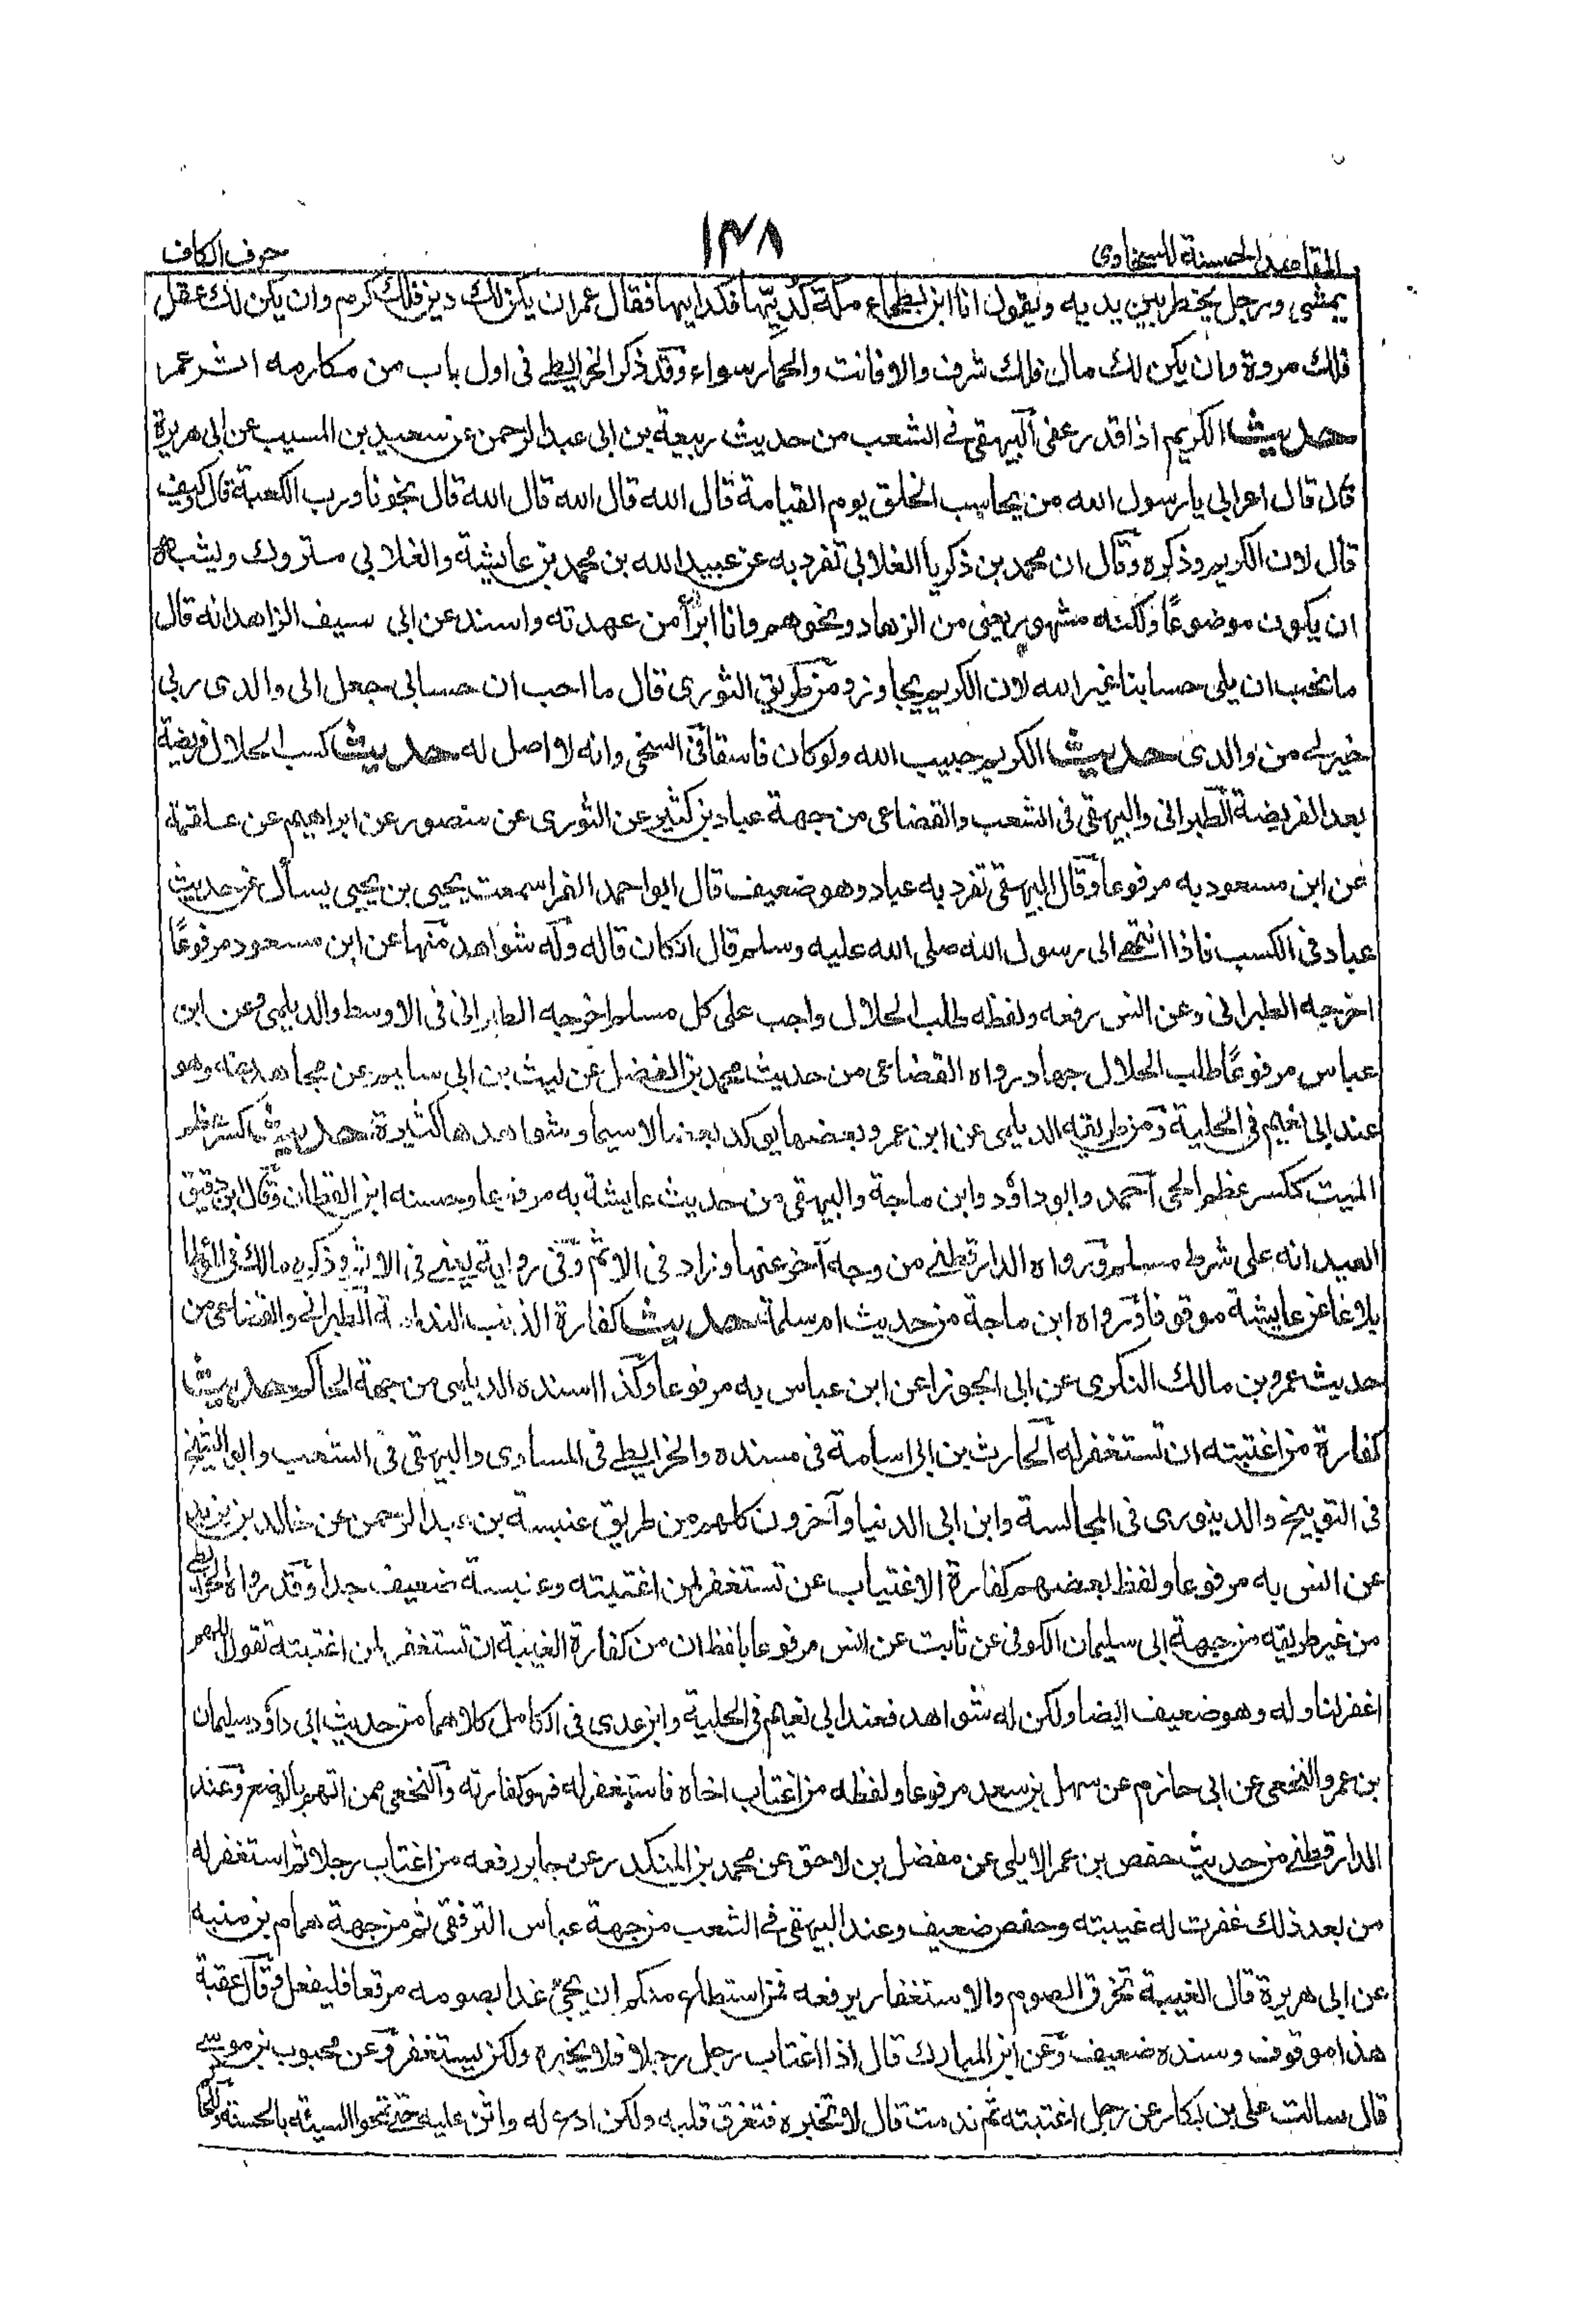 المقاصد الحسنة للسخاوى
١٤٨
حرف الكاف
يمشى ورجل يخطر بين يديه ويقول انا ابن بطحاء مكة كديّها فكدايها فقال عمر ان يكن لك دين فلك كرم وان يكن لك عقل
فلك مروة وان يكن لك مال فلك شرف والا فانت والحمار سواء وقد ذكر الخرايطى فى اول باب من مكارمه اثر عمر
حديث الكريم اذا قدر عفى البيهقى فى الشعب من حديث ربيعة بن ابى عبد الرحمن عن سعيد بن المسيب عن ابى هريرة
قال قال اعرابى يا رسول الله من يحاسب الخلق يوم القيامة قال الله قال الله قال الله قال نجونا ورب الكعبة قال كيف
قال لان الكريم وذكره وقال ان محمد بن زكريا الغلابى تفرد به عن عبيد الله بن محمد بن عايشة والغلابى متروك ويشبه
ان يكون موضوعًا ولكنه مشهور يعنى من الزهاد ونحوهم وانا ابرأ من عهدته واسند عن ابى سيف الزاهد انه قال
ما نحب ان يلى حسابنا غير الله لان الكريم يتجاوز ومن طريق الثورى قال ما احب ان حسابى جعل الى والدى ربى
خير لى من والدى حديث الكريم حبيب الله ولو كان فاسقا فى السخى وانه لا اصل له حديث كسب الحلال فريضة
بعد الفريضة الطبرانى والبيهقى فى الشعب والقضاعى من جهة عباد بن كثير عن الثورى عن منصور عن ابراهيم عن علقمة
عن ابن مسعود به مرفوعا وقال البيهقى تفرد به عباد وهو ضعيف قال ابو احمد الفرا سمعت يحيى بن يحيى يسأل عن حديث
عباد فى الكسب فاذا انتهى الى رسول الله صلى الله عليه وسلم قال ان كان قاله وله شواهد منها عن ابن مسعود مرفوعًا
اخرجه الطبرانى وعن انس رفعه ولفظه طلب الحلال واجب على كل مسلم اخرجه الطبرانى فى الاوسط والديلمى وعن ابن
عباس مرفوعًا طلب الحلال جهاد رواه القضاعى من حديث محمد بن الفضل عن ليث بن ابى سليم عن مجاهد عنه وهو
عند ابى نعيم فى الحلية ومن طريقه الديلمى عن ابن عمر وبعضها يوكد بعضا لاسيما وشواهدها كثيرة حديث كسر عظم
الميت ككسر عظم الحى احمد وابو داؤد وابن ماجة والبيهقى من حديث عايشة به مرفوعا وحسنه ابن القطان وقال ابن دقيق
العيد انه على شرط مسلم ورواه الدارقطنى من وجه آخر عنها وزاد فى الاثم وفى رواية يعنى فى الاثم وذكره مالك فى الموطا
بلاغا عن عايشة موقوفا ورواه ابن ماجة من حديث ام سلمة حديث كفارة الذنب الندامة الطبرانى والقضاعى من
حديث عمرو بن مالك النكرى عن ابى الجوزا عن ابن عباس به مرفوعا وكذا اسنده الديلمى من جهة الحاكم حديث
كفارة من اغتبته ان تستغفر له الحارث بن ابى اسامة فى مسنده والخرايطى فى المساوى والبيهقى فى الشعب وابو الشيخ
فى التوبيخ والدينورى فى المجالسة وابن ابى الدنيا وآخرون كلهم من طريق عنبسة بن عبد الرحمن عن خالد بن يزيد
عن انس به مرفوعا ولفظ بعضهم كفارة الاغتياب عن تستغفر لمن اغتبته وعنبسة ضعيف جدا وقد رواه الخرايطى
من غير طريقه من جهة ابى سليمان الكوفى عن ثابت عن انس مرفوعا بلفظ ان من كفارة الغيبة ان تستغفر لمن اغتبته تقول اللهم
اغفر لنا وله وهو ضعيف ايضا ولكن له شواهد فعند ابى نعيم فى الحلية وابن عدى فى الكامل كلاهما من حديث ابى داؤد سليمان
بن عمرو النخعى عن ابى حازم عن سهل بن سعد مرفوعا ولفظه من اغتاب اخاه فاستغفر له فهو كفارته والنخعى ممن اتهم بالوضع وعند
الدارقطنى من حديث حفص بن عمر الايلى عن مفضل بن لاحق عن محمد بن المنكدر عن جابر رفعه من اغتاب رجلا ثم استغفر له
من بعد ذلك غفرت له غيبته وحفص ضعيف وعند البيهقى فى الشعب من جهة عباس الترقفى ثم من جهة همام بن منبه
عن ابى هريرة قال الغيبة تخرق الصوم والاستغفار يرفعه فمن استطاع منكم ان يجئ غدا بصومه مرقعا فليفعل وقال عقبة
هذا موقوف وسنده ضعيف وعن ابن المبارك قال اذا اغتاب رجل رجلا فلا يخبره ولكن يستغفر وعن محبوب بن موسى
قال سالت على بن بكار عن رجل اغتبته ثم ندمت قال لا تخبره فتغرق قلبه ولكن ادع له واثن عليه حتى تمحو السيئه بالحسنة